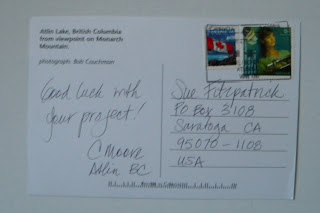 Atlin Lake, British Columbia
from viewpoint on Monarch
Mountain.
photograph: Bob Couchman
Good luck with
your project!
CMoore
Atlin BC
Sue Fitzpatrick
PO Box 3108
Saratoga CA
95070-1108
USA